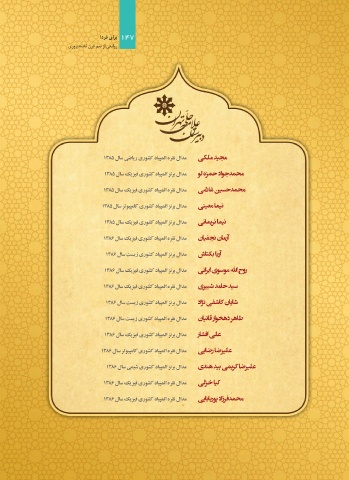 ۱۴۷
برای فردا
دبیرستان علامه حلی تهران
مجید ملکی مدال نقره المپیاد کشوری ریاضی سال ۱۳۸۵
محمدجواد حمزه لو مدال برنز المپیاد کشوری فیزیک سال ۱۳۸۵
محمدحسین غلامی مدال نقره المپیاد کشوری فیزیک سال ۱۳۸۵
نیما معینی مدال برنز المپیاد کشوری کامپیوتر سال ۱۳۸۵
نیما نریمانی مدال برنز المپیاد کشوری فیزیک سال ۱۳۸۵
آرمان نجفیان مدال نقره المپیاد کشوری فیزیک سال ۱۳۸۶
آریا بکتاش مدال نقره المپیاد کشوری زیست سال ۱۳۸۶
روح الله موسوی ایرانی مدال برنز المپیاد کشوری فیزیک سال ۱۳۸۶
سید حامد شبیری مدال برنز المپیاد کشوری فیزیک سال ۱۳۸۶
شایان کاشفی نژاد مدال برنز المپیاد کشوری زیست سال ۱۳۸۶
طاهر دهخوار قانیان مدال نقره المپیاد کشوری زیست سال ۱۳۸۶
علی افشار مدال برنز المپیاد کشوری فیزیک سال ۱۳۸۶
علیرضا رضایی مدال برنز المپیاد کشوری کامپیوتر سال ۱۳۸۶
علیرضا کریمی بیدهندی مدال برنز المپیاد کشوری شیمی سال ۱۳۸۶
کیا خزلی مدال نقره المپیاد کشوری فیزیک سال ۱۳۸۶
محمدفرزاد پوربابایی مدال نقره المپیاد کشوری فیزیک سال ۱۳۸۶